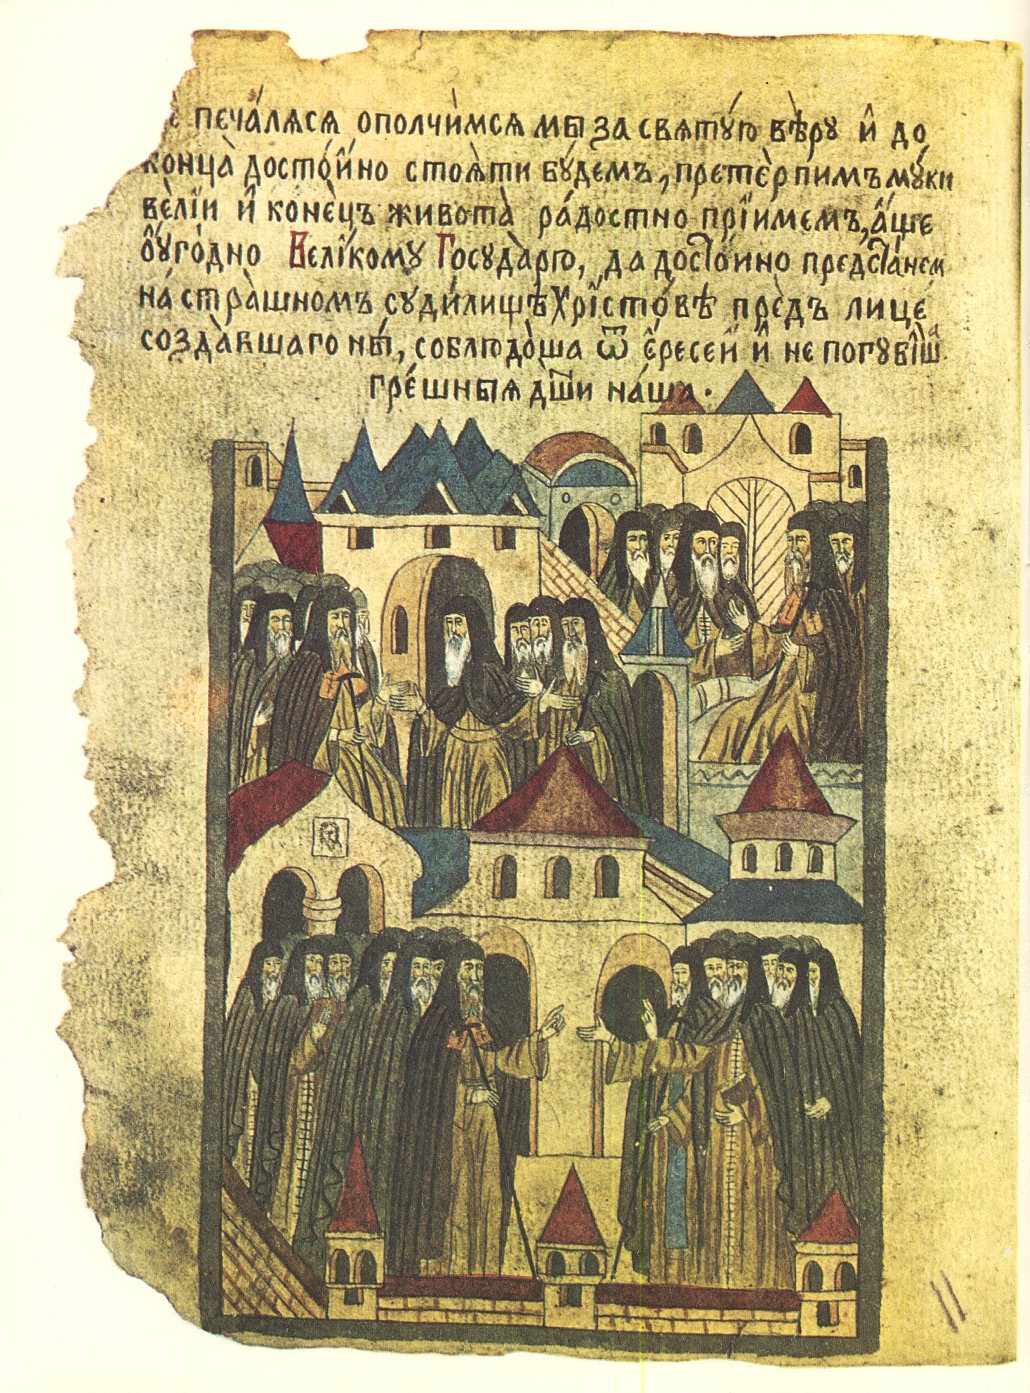 печа́лѧсѧ ополчи́мсѧ мы̀ за свѧту́ю вѣ̀ру и҆̀ до
конца̀ досто́йно стоѧ̀ти бу́демъ, претѐрпимъ му́ки
вѐлїи и҆̀ коне́цъ живота̀ ра́достно прїи́мемъ, а҆́ще
ѹ҆го́дно Вели́кому Госуда̀рю, да досто́ино предста́нем
на́ страшномъ суди́лищѣ Хрїсто́вѣ пре́дъ лице́
созда̀вшаго ны̀, соблюдо́ша ѿ е҆́ресей и҆̀ не погуби́ша
грѐшныѧ дш҃и на́ша.
11